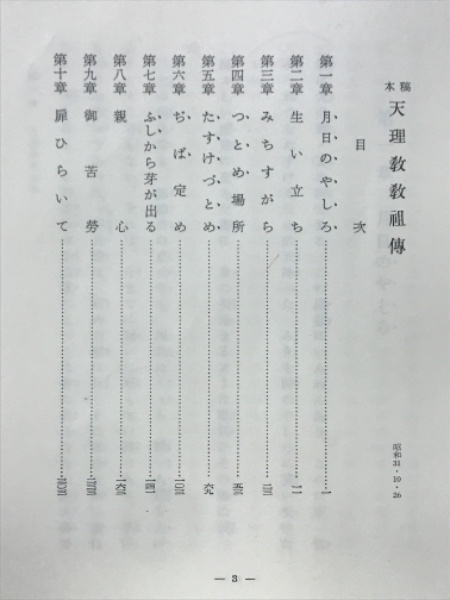 稿本 天理教教祖傳
昭和31・10・26
目次
第一章 月日のやしろ 一
第二章 生い立ち 一一
第三章 みちすがら
第四章 つとめ場所
第五章 たすけづとめ 六九
第六章 ぢば定め
第七章 ふしから芽が出る 一四一
第八章 親心
第九章 御苦勞
第十章 扉ひらいて
— 3 —